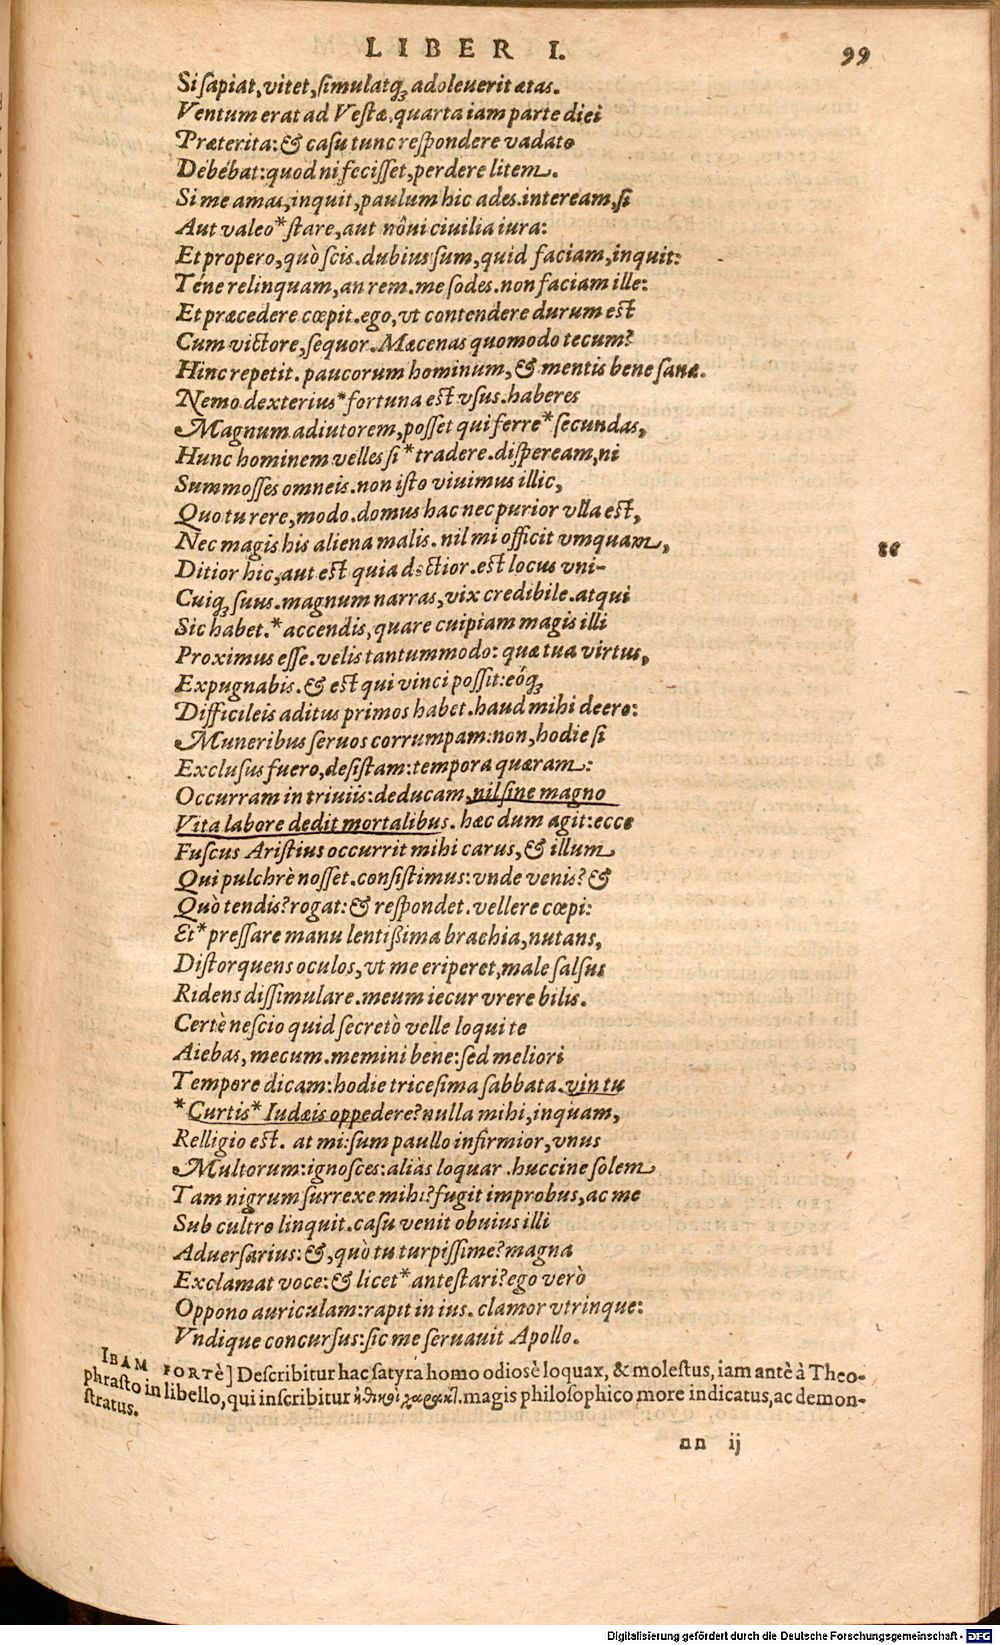 LIBER I. 99
Si sapiat, vitet, simulatq́; adoleuerit ætas.
Ventum erat ad Vestæ, quarta iam parte diei
Præterita: & casu tunc respondere vadato
Débébat: quod ni fecisset, perdere litem.
Si me amas, inquit, paulum hic ades. inteream, si
Aut valeo * stare, aut nôui ciuilia iura:
Et propero, quò scis. dubius sum, quid faciam, inquit:
Tene relinquam, an rem. me sodes. non faciam ille:
Et præcedere cœpit. ego, vt contendere durum est
Cum victore, sequor. Mæcenas quomodo tecum?
Hinc repetit. paucorum hominum, & mentis bene sanæ.
Nemo dexterius * fortuna est vsus. haberes
Magnum adiutorem, posset qui ferre * secundas,
Hunc hominem velles si * tradere. dispeream, ni
Summosses omneis. non isto viuimus illic,
Quo tu rere, modo. domus hac nec purior vlla est,
Nec magis his aliena malis. nil mi officit vmquam,
Ditior hic, aut est quia doctior. est locus vni-
Cuiq; suus. magnum narras, vix credibile. atqui
Sic habet. * accendis, quare cupiam magis illi
Proximus esse. velis tantummodo: quæ tua virtus,
Expugnabis. & est qui vinci possit: eóq;
Difficileis aditus primos habet. haud mihi deero:
Muneribus seruos corrumpam: non, hodie si
Exclusus fuero, desistam: tempora quæram:
Occurram in triuiis: deducam, nil sine magno
Vita labore dedit mortalibus. hæc dum agit: ecce
Fuscus Aristius occurrit mihi carus, & illum
Qui pulchrè nosset. consistimus: vnde venis? &
Quò tendis? rogat: & respondet. vellere cœpi:
Et * pressare manu lentißima brachia, nutans,
Distorquens oculos, vt me eriperet, male salsus
Ridens dissimulare. meum iecur vrere bilis.
Certè nescio quid secretò velle loqui te
Aiebas, mecum. memini bene: sed meliori
Tempore dicam: hodie tricesima sabbata. vin tu
* Curtis * Iudæis oppedere? nulla mihi, inquam,
Relligio est. at mi: sum paullo infirmior, vnus
Multorum: ignosces: aliàs loquar. huccine solem
Tam nigrum surrexe mihi? fugit improbus, ac me
Sub cultro linquit. casu venit obuius illi
Aduersarius: &, quò tu turpissime? magna
Exclamat voce: & licet * antestari? ego verò
Oppono auriculam: rapit in ius. clamor vtrinque:
Vndique concursus: sic me seruauit Apollo.
IBAM FORTÈ] Describitur hac satyra homo odiosè loquax, & molestus, iam antè à Theo-
phrasto in libello, qui inscribitur ἠθικοὶ χαρακτ. magis philosophico more indicatus, ac demon-
stratus.
nn ij
Digitalisierung gefördert durch die Deutsche Forschungsgemeinschaft - DFG